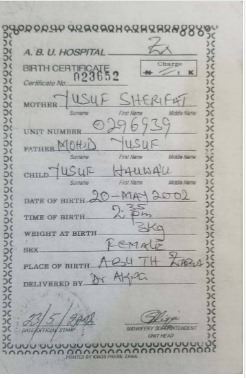 A. B. U. HOSPITAL
BIRTH CERTIFICATE
Charge
₦ : K
Certificate No. 023652
MOTHER YUSUF SHERIFAT
Surname First Name Middle Name
UNIT NUMBER 0296939
FATHER MOHD YUSUF
Surname First Name Middle Name
CHILD YUSUF HAUWAU
Surname First Name Middle Name
DATE OF BIRTH 20-MAY 2002
TIME OF BIRTH 2 35 pm
WEIGHT AT BIRTH 3kg
SEX FEMALE
PLACE OF BIRTH ABUTH ZARIA
DELIVERED BY Dr
23/5/2002
DATE/OFFICIAL STAMP
MIDWIFERY SUPERINTENDENT
UNIT HEAD